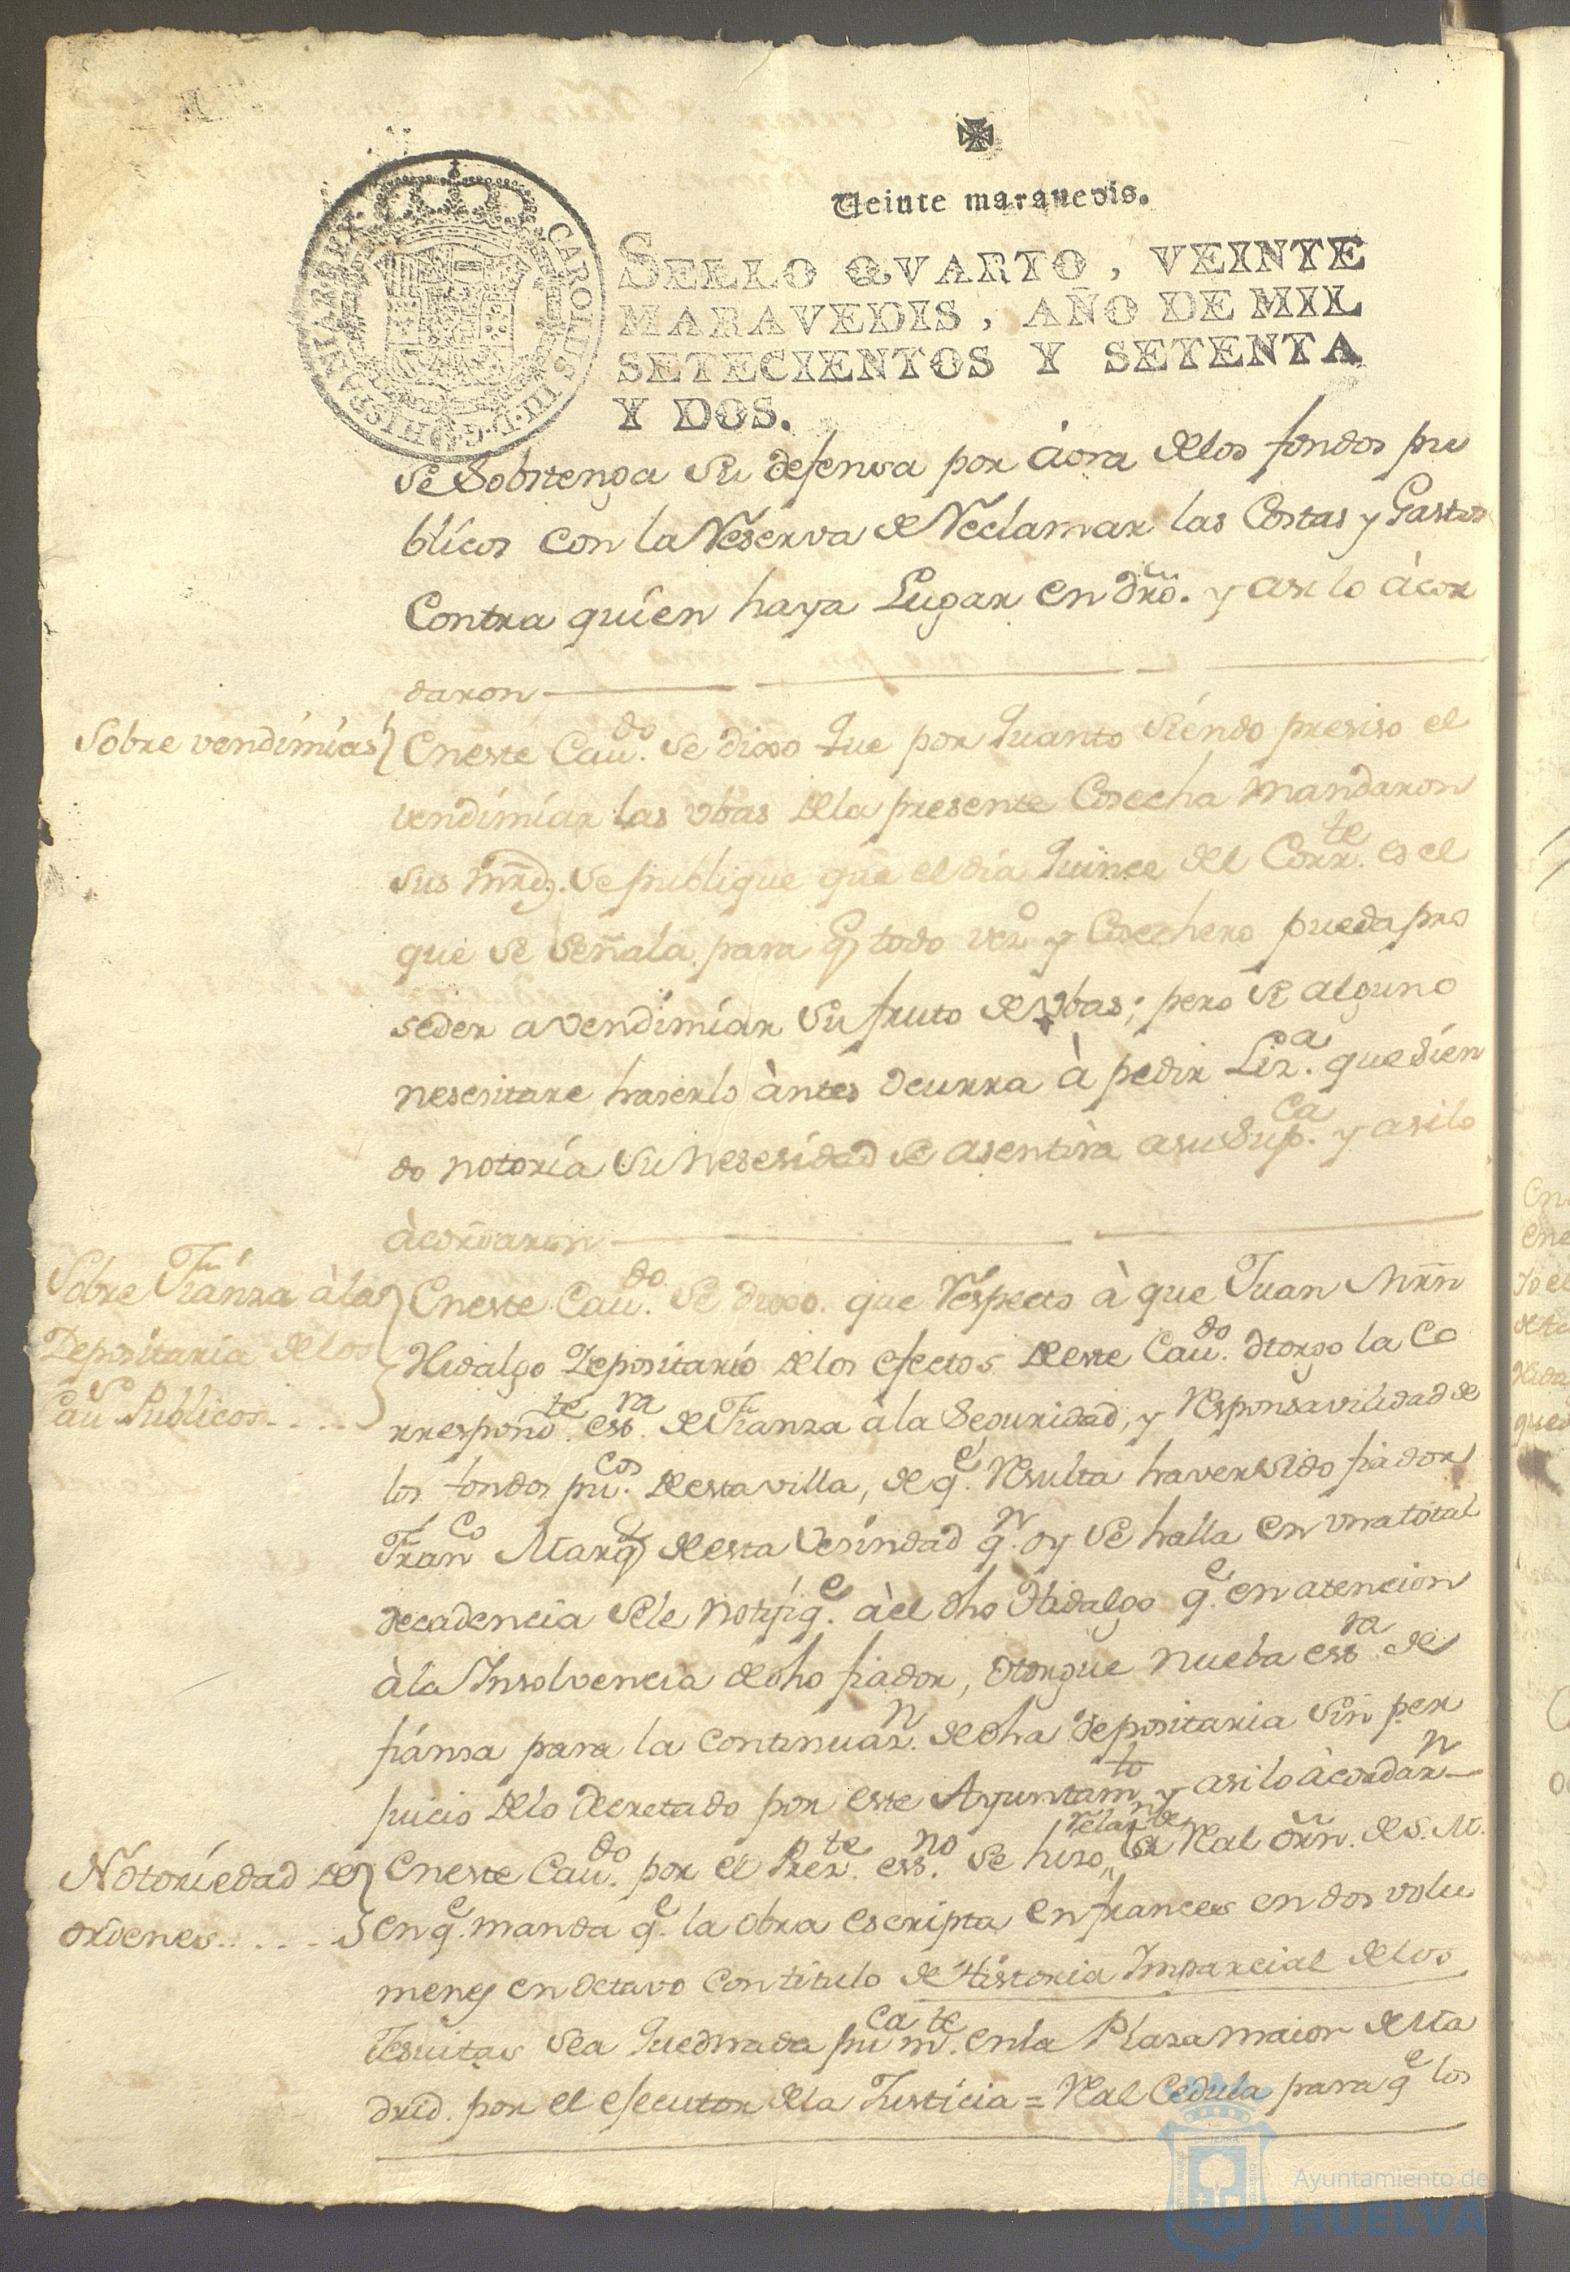 Veinte maravedis.
SELLO QVARTO, VEINTE
MARAVEDIS, AÑO DE MIL
SETECIENTOS Y SETENTA
Y DOS.
CAROLUS III D.G. HISPANIAR. REX
se Sobstenga su defensa por àora de los fondos pu
blicos con la Reserva de Reclamar las Costas y Gastos
Contra quien haya Lugar en dro. y asi lo àcor
daron
Sobre vendimias
En este Cavdo. se dixo que por quanto siendo presiso el
vendimiar las vbas de la presente Cosecha mandaron
sus mrds. se publique que el dia quince del Corrte. es el
que se señala para q todo vezo y Cosechero pueda pro
seder a vendimiar su fruto de vbas; pero si alguno
nesesitare haserlo àntes ocurra à pedir Liza. que sien
do notoria su nesesidad se asentirà a su Supca. y asi lo
àcordaron
Sobre Fianza à la
Depositaria de los
Cauds Publicos
En este Cavdo. se dixo que Respecto à que Juan Mrñ
Hidalgo Depositario de los efectos de este Cavdo. otorgo la Co
rrespondte. essra. de Fianza à la Seguridad, y Responsavilidad de
los fondos pucos. de esta villa, de qe. Resulta haver sido fiador
Franco Marqz de esta Vesindad qn. oy se halla en vna total
decadencia se le notifiqe. à el dho Hidalgo qe. en atencion
à la Insolvencia de dho fiador, otorgue nueba essra. de
fianza para la continuazn. de dha depositaria sin per
juicio de lo decretado por este Ayuntamto y asi lo àcordarn
Notoriedad de
ordenes
En este Cavdo. por el Preste. essno. se hizo relazn de la Real orn. de S. M.
en qe. manda qe. la obra escripta en frances en dos volu
menes en octavo con titulo de Historia Imparcial de los
Jesuitas sea quemada pucamte. en la Plaza maior de Ma
drid. por el efecutor de la Justicia = Real Cedula para qe los
Ayuntamiento de
HUELVA